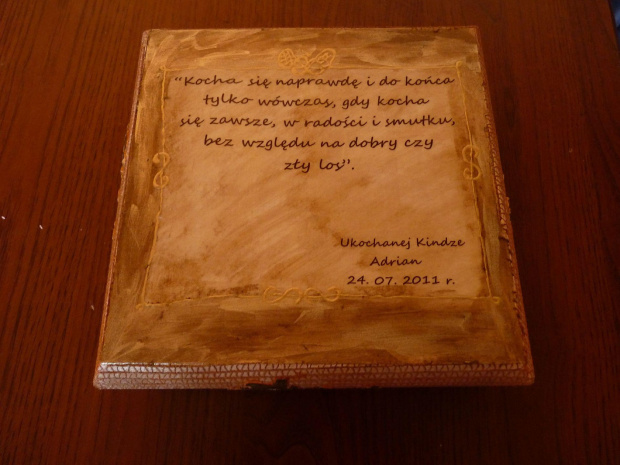 “Kocha się naprawdę i do końca
tylko wówczas, gdy kocha
się zawsze, w radości i smutku,
bez względu na dobry czy
zły los”.
Ukochanej Kindze
Adrian
24. 07. 2011 r.